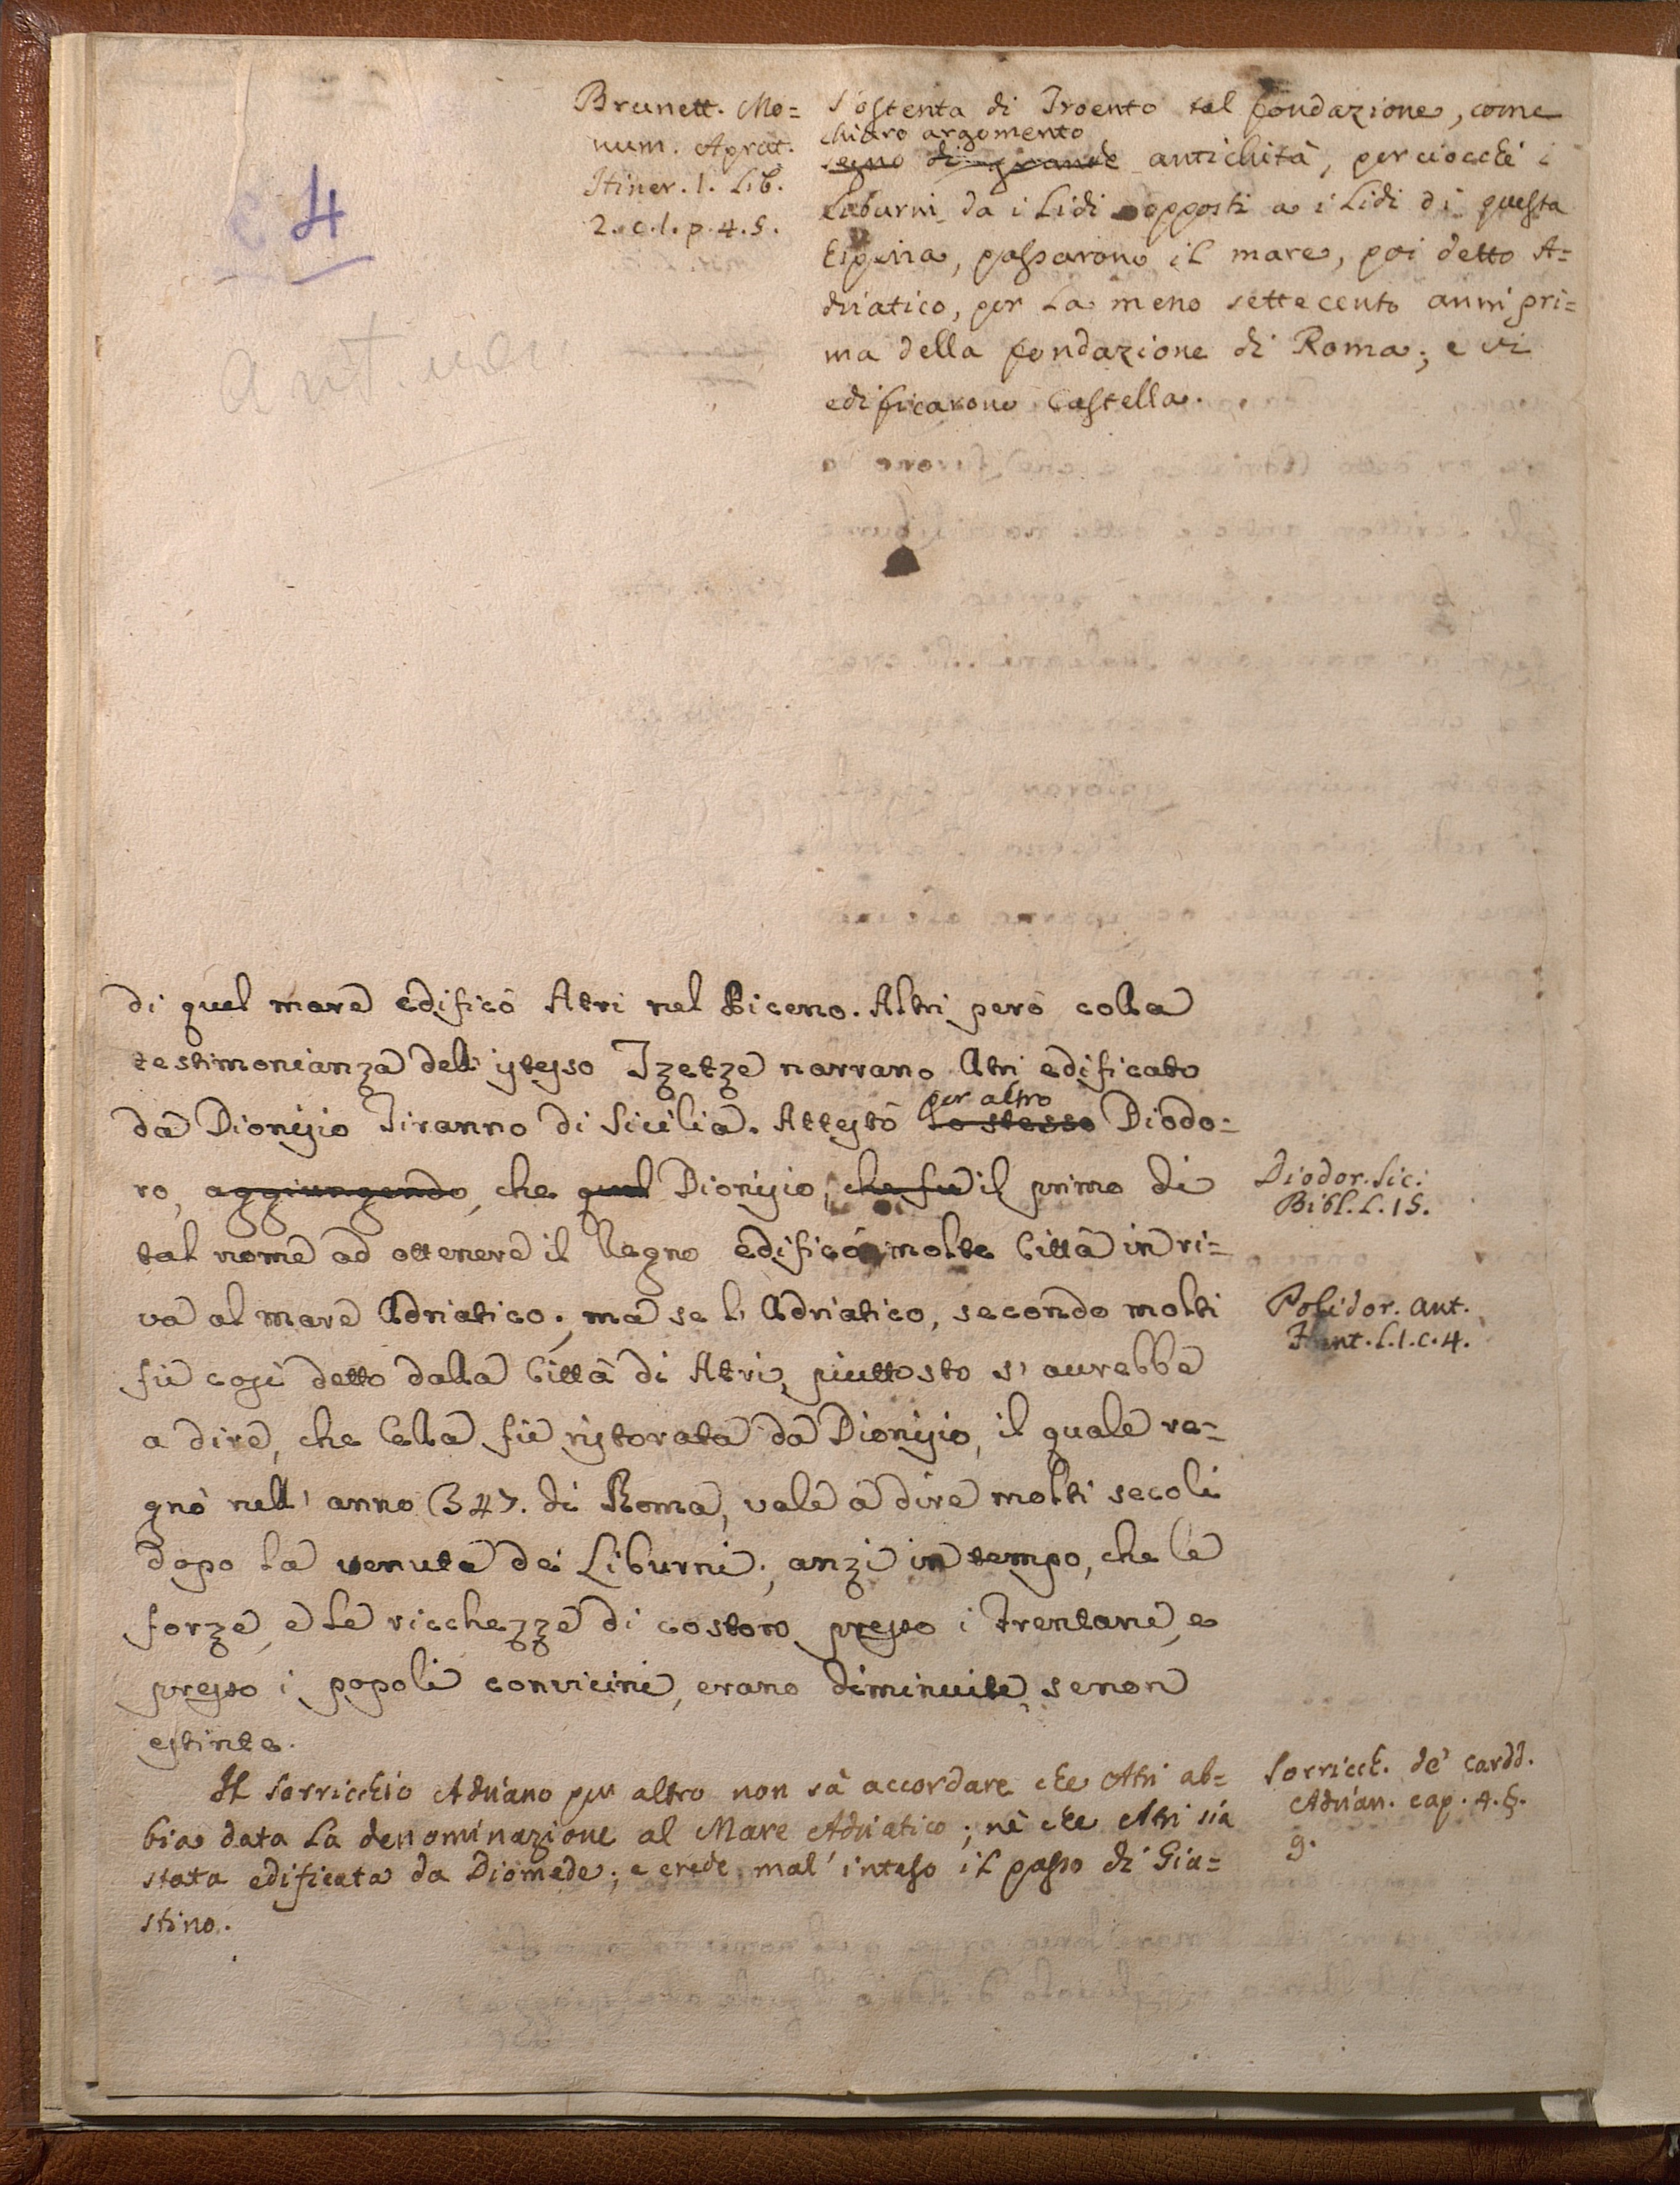 Brunett. Mo=
num. Aprut.
Itiner. 1. Lib.
2. c. 1. p. 4. 5.
4
ant.
s'ostenta di Troento tal fondazione, come
chiaro argomento
segno di grande antichità, perciocchè i
Liburni da i Lidi opposti a i Lidi di questa
passarono il mare, poi detto A=
driatico, per la meno settecento anni pri=
ma della fondazione di Roma; e vi
edificarono Castella.
di quel mare edificò Atri nel Piceno. Altri però colla
testimonianza dell' istesso Tzetze narrano Atri edificato
per altro
da Dionisio Tiranno di Sicilia. Attestò lo stesso Diodo=
ro, aggiungendo, che quel Dionisio, che fu il primo di
tal nome ad ottenere il Regno edificò molte Città in ri=
va al mare Adriatico; ma se l' Adriatico, secondo molti
fù così detto dalla Città di Atri, piuttosto s' aurebbe
a dire, che Ella fù ristorata da Dionisio, il quale re=
gnò nell' anno 347. di Roma, vale a dire molti secoli
dopo la venuta dei Liburni; anzi in tempo, che le
forze, e le ricchezze di costoro presso i Frentani, e
presso i popoli convicini, erano diminuite, se non
estinte.
Diodor. Sic.
Bibl. L. 15.
Polidor. Ant.
Frent. L. 1. c. 4.
Il Sorricchio Adriano per altro non sà accordare che Atri ab=
bia data la denominazione al Mare Adriatico; nè che Atri sia
stata edificata da Diomede; e crede mal' inteso il passo di Giu=
stino.
Sorricch. de' Cardd.
Adrian. cap. 4. §.
9.